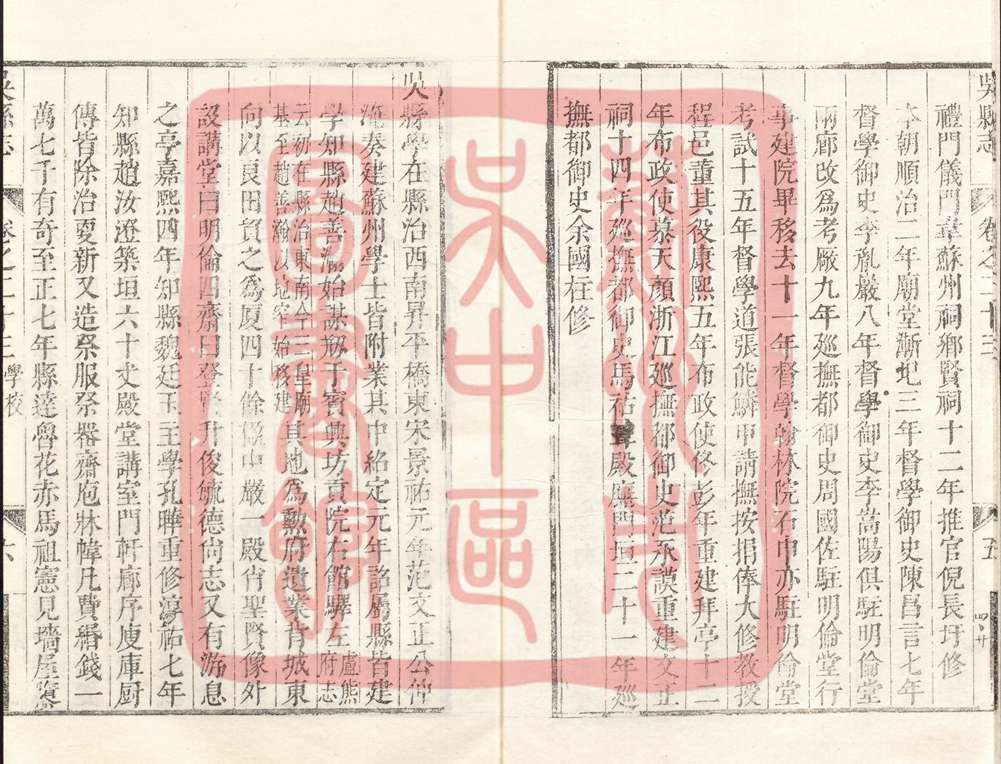 吳縣志 卷之二十三 五
禮門儀門革蘇州祠鄉賢祠十二年推官倪長圩修
本朝順治二年廟堂漸圯三年督學御史陳昌言七年
督學御史李胤嚴八年督學御史李嵩陽俱駐明倫堂
兩廊改爲考厰九年廵撫都御史周國佐駐明倫堂行
事建院畢移去十一年督學翰林院石申亦駐明倫堂
考試十五年督學道張能鱗申請撫按捐俸大修教授
程邑董其役康熙五年布政使佟彭年重建拜亭十二
年布政使慕天顏浙江廵撫都御史范承謨重建文正
祠十四年廵撫都御史馬祐 殿廡門垣二十一年廵
撫都御史余國柱修
吳縣學在縣治西南昇平橋東宋景祐元年范文正公仲
淹奏建蘇州學士皆附業其中紹定元年詔屬縣皆建
學知縣趙善瀚始謀剏于賓興坊貢院右館驛左盧熊府志
云初在縣治東南今三皇廟
基至趙善瀚以地窄始移建其地為勳府遺業背城東
向以良田貿之為廈四十餘 中嚴一殿肖聖賢像外
設講堂曰明倫四齋曰登賢升俊毓德尙志又有游息
之亭嘉熙四年知縣魏廷玉主學孔曄重修淳祐七年
知縣趙汝澄築垣六十丈殿堂講室門軒廊序庾庫厨
傳皆除治更新又造祭服祭器齋庖牀幃凡費緡錢一
萬七千有奇至正七年縣達魯花赤馬祖憲見墻屋
吳縣志 卷之二十三 學校 六
蘇州
吳中區
圖書館